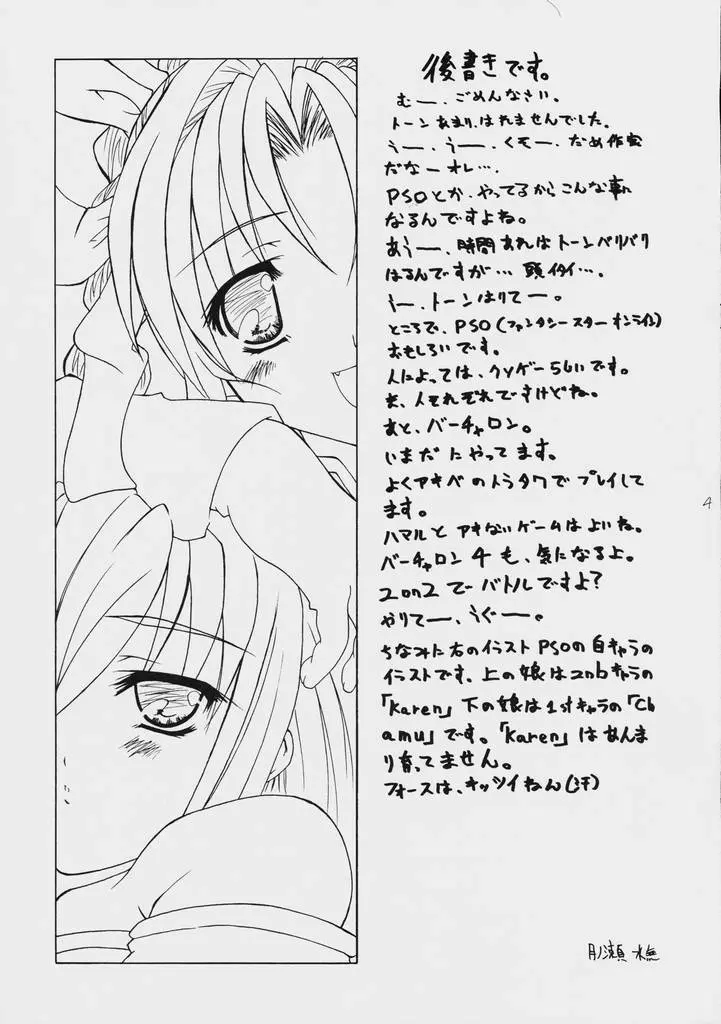 後書きです。
むー、ごめんなさい。
トーンあまり、はれませんでした。
うー、うー、くそー、だめ作家
だなーオレ…。
PSOとか、やってるからこんな事に
なるんですよね。
あうー、時間あればトーンバリバリ
はるんですが…頭イタイ…。
うー、トーンはりてー。
ところで、PSO(ファンタシースターオンライン)
おもしろいです。
人によっては、クソゲーらしいです。
ま、人それぞれですけどね。
あと、バーチャロン。
いまだにやってます。
よくアキバのトラタワでプレイして
ます。
ハマルとアキないゲームはよいね。
バーチャロン4も、気になるよ。
2on2でーバトルですよ?
やりてー、うぐー。
ちなみに右のイラストPSOの自キャラの
イラストです、上の娘は2ndキャラの
「Karen」下の娘は1stキャラの「Ch
amu」です。「Karen」はあんま
り育ってません。
フォースは、キッツイねん(汗)
月瀬
4